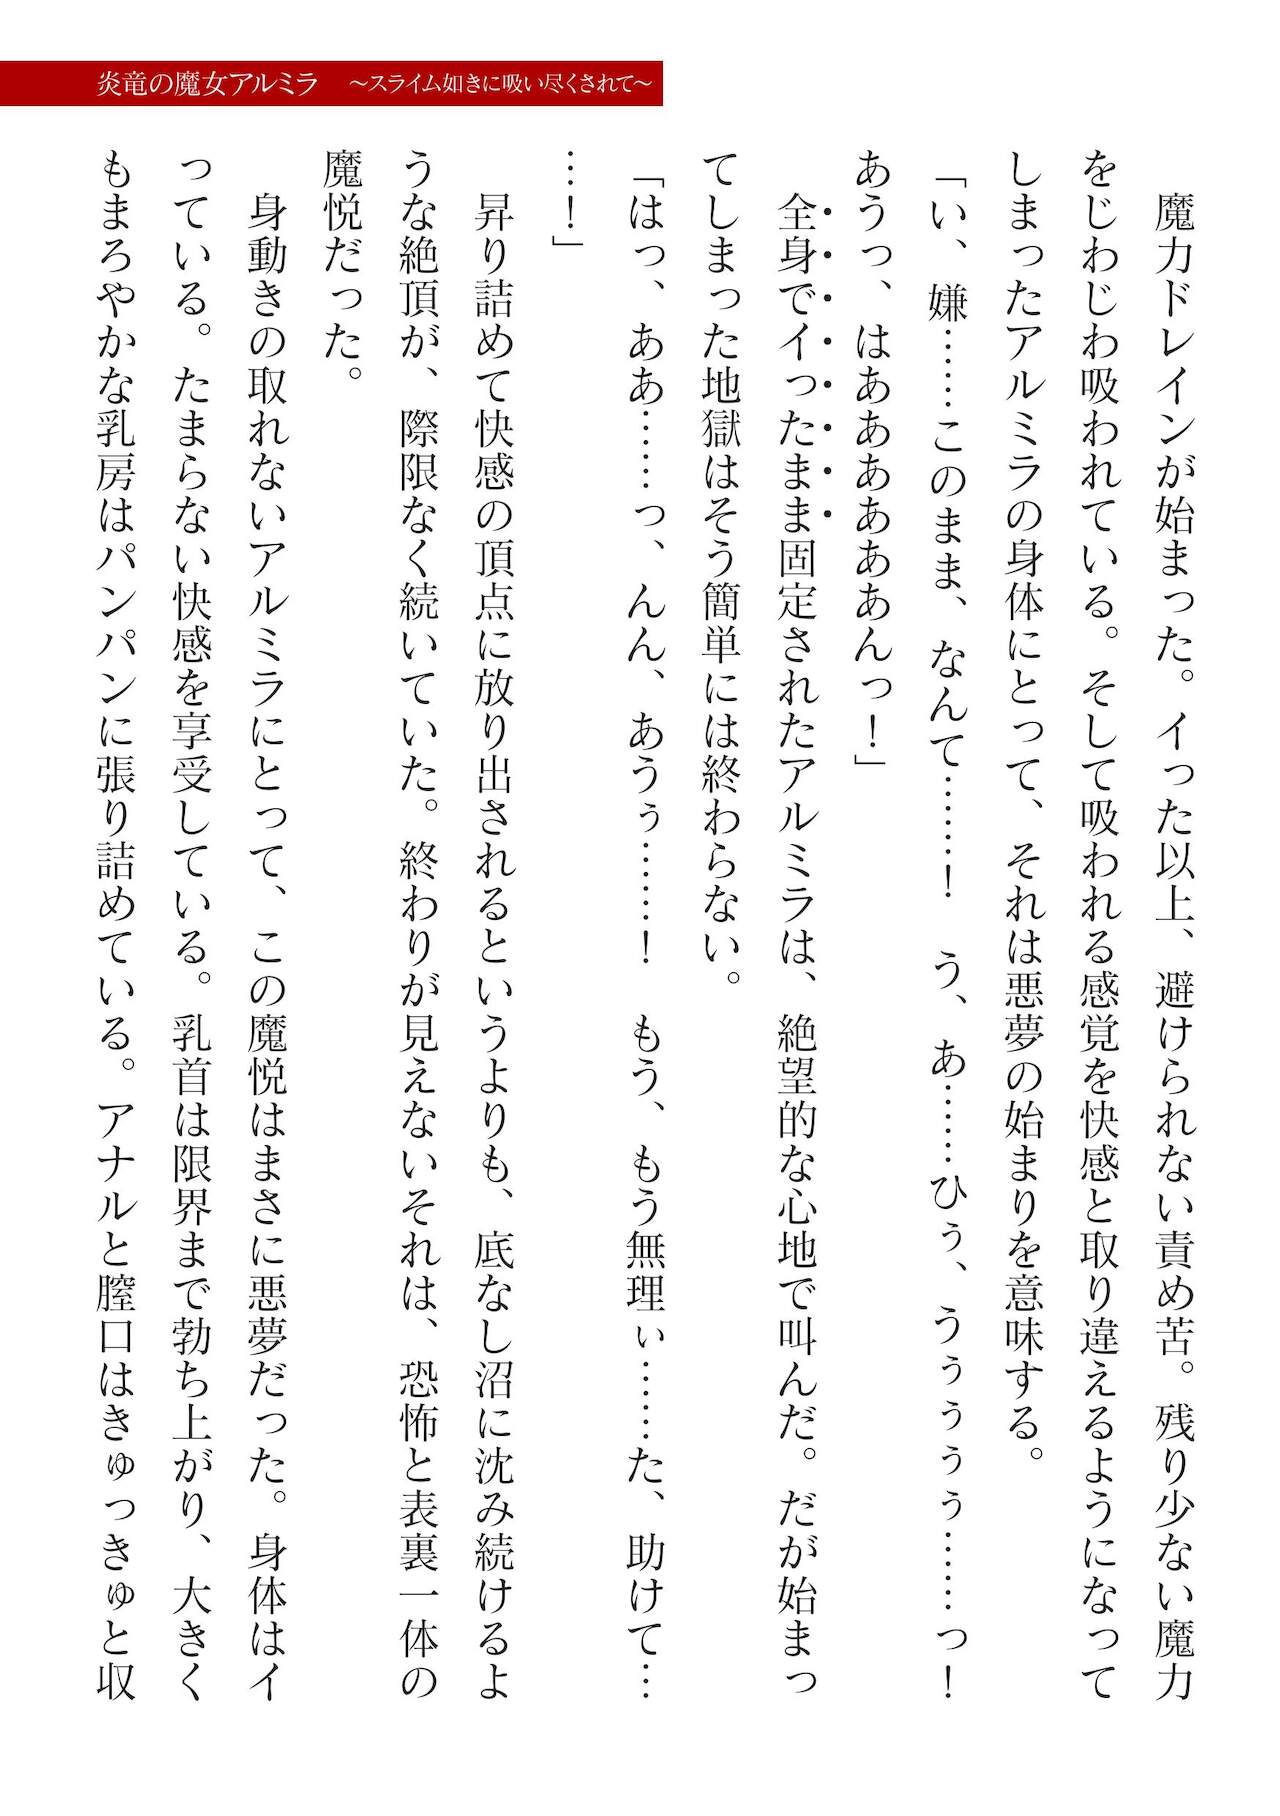 炎竜の魔女アルミラ　～スライム如きに吸い尽くされて～
　魔力ドレインが始まった。イった以上、避けられない責め苦。残り少ない魔力
をじわじわ吸われている。そして吸われる感覚を快感と取り違えるようになって
しまったアルミラの身体にとって、それは悪夢の始まりを意味する。
「い、嫌……このまま、なんて……！　う、あ……ひぅ、うぅぅぅぅ……っ！
あうっ、はああああああんっ！」
　全身でイったまま固定されたアルミラは、絶望的な心地で叫んだ。だが始まっ
てしまった地獄はそう簡単には終わらない。
「はっ、ああ……っ、んん、あうぅ……！　もう、もう無理ぃ……た、助けて…
…！」
　昇り詰めて快感の頂点に放り出されるというよりも、底なし沼に沈み続けるよ
うな絶頂が、際限なく続いていた。終わりが見えないそれは、恐怖と表裏一体の
魔悦だった。
　身動きの取れないアルミラにとって、この魔悦はまさに悪夢だった。身体はイ
っている。たまらない快感を享受している。乳首は限界まで勃ち上がり、大きく
もまろやかな乳房はパンパンに張り詰めている。アナルと膣口はきゅっきゅと収